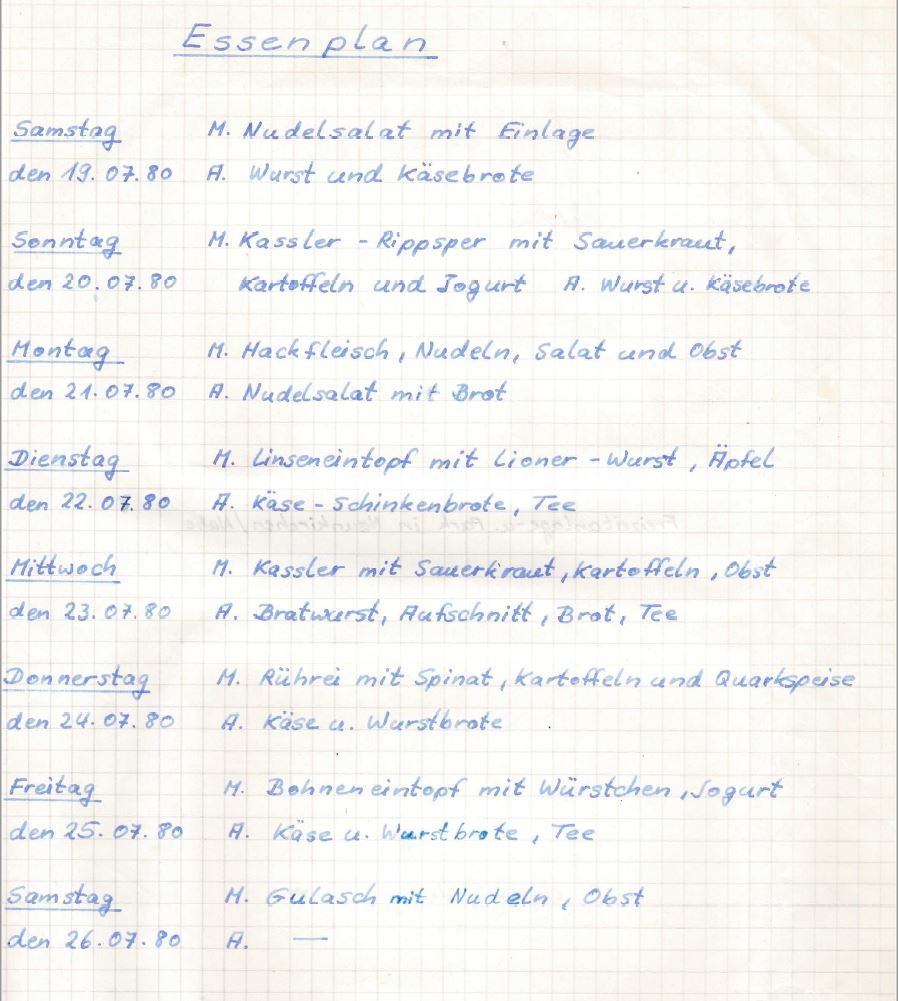 Essenplan
Samstag M. Nudelsalat mit Einlage
den 19.07.80 A. Wurst und Käsebrote
Sonntag M. Kassler - Rippsper mit Sauerkraut,
den 20.07.80 Kartoffeln und Jogurt A. Wurst u. Käsebrote
Montag M. Hackfleisch, Nudeln, Salat und Obst
den 21.07.80 A. Nudelsalat mit Brot
Dienstag M. Linseneintopf mit Lioner - Wurst, Äpfel
den 22.07.80 A. Käse - Schinkenbrote, Tee
Mittwoch M. Kassler mit Sauerkraut, Kartoffeln, Obst
den 23.07.80 A. Bratwurst, Aufschnitt, Brot, Tee
Donnerstag M. Rührei mit Spinat, Kartoffeln und Quarkspeise
den 24.07.80 A. Käse u. Wurstbrote
Freitag M. Bohneneintopf mit Würstchen, Jogurt
den 25.07.80 A. Käse u. Wurstbrote, Tee
Samstag M. Gulasch mit Nudeln, Obst
den 26.07.80 A. —